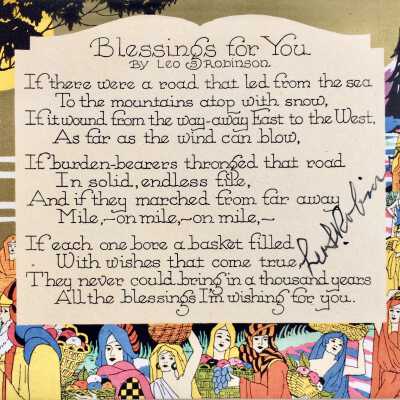 Blessings for You
By Leo S Robinson.
If there were a road that led from the sea
To the mountains atop with snow,
If it wound from the way-away East to the West,
As far as the wind can blow,
If burden-bearers thronged that road
In solid, endless file,
And if they marched from far away
Mile,~on mile,~on mile,~
If each one bore a basket filled
With wishes that come true
They never could bring in a thousand years
All the blessings I'm wishing for you.